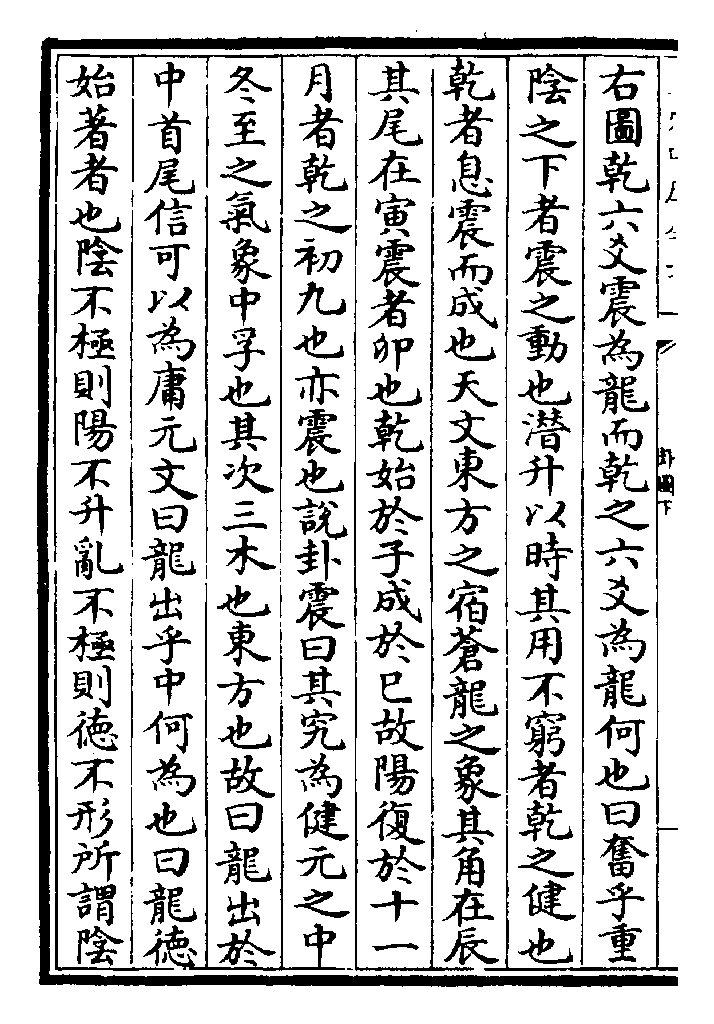 卦圖下
右圖乾六爻震為龍而乾之六爻為龍何也曰奮乎重
陰之下者震之動也潛升以時其用不窮者乾之健也
乾者息震而成也天文東方之宿蒼龍之象其角在辰
其尾在寅震者卯也乾始於子成於巳故陽復於十一
月者乾之初九也亦震也說卦震曰其究為健元之中
冬至之氣象中孚也其次三木也東方也故曰龍出於
中首尾信可以為庸元文曰龍出乎中何為也曰龍德
始著者也陰不極則陽不升亂不極則德不形所謂陰